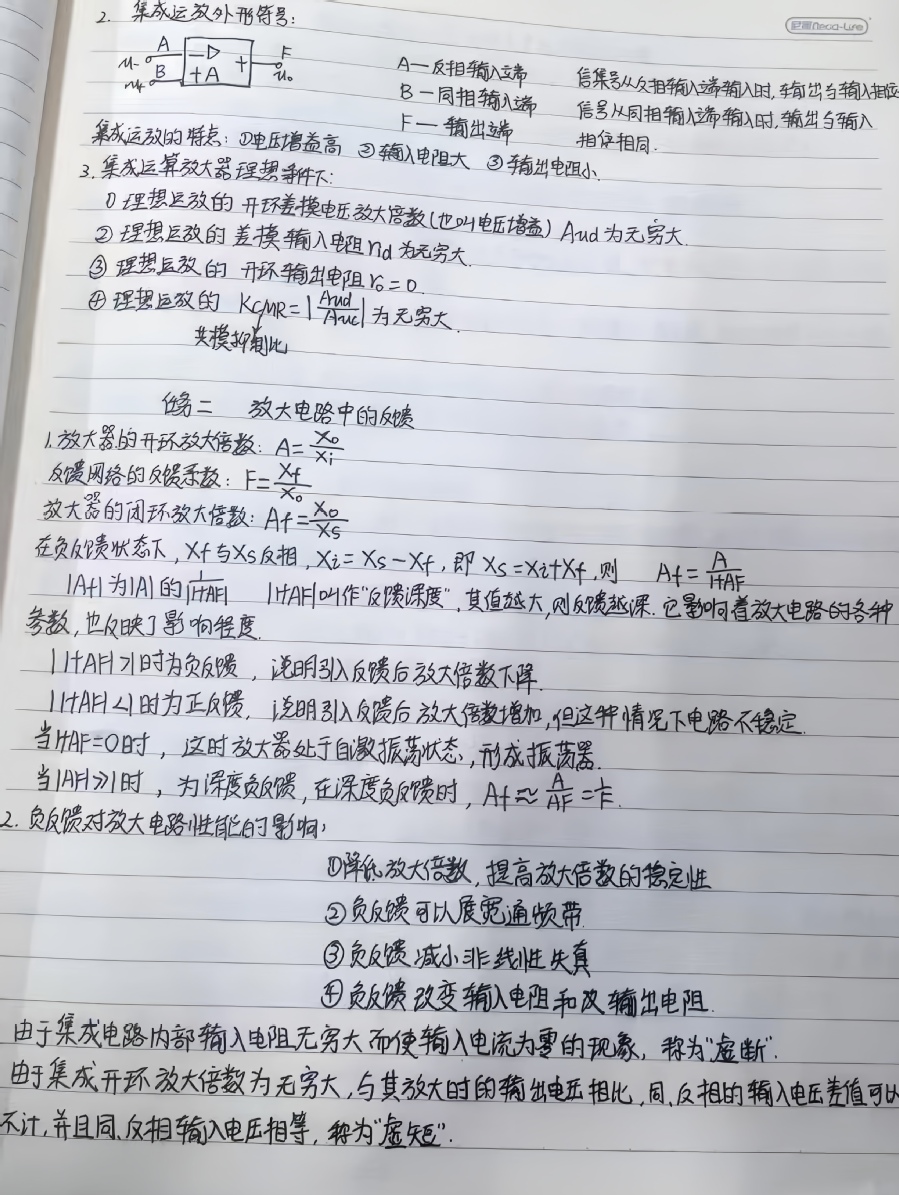 2. 集成运放外形符号:
A
u- B
u+
- ▷ +
+ A
F
uo
A—反相输入端 信集号从反相输入端输入时,输出与输入相位
B—同相输入端 信号从同相输入端输入时,输出与输入
F—输出端 相位相同.
集成运放的特点:①电压增益高 ②输入电阻大 ③输出电阻小.
3. 集成运算放大器理想条件下:
① 理想运放的 开环差模电压放大倍数(也叫电压增益) Aud 为无穷大.
② 理想运放的 差模输入电阻 rid 为无穷大.
③ 理想运放的 开环输出电阻 ro=0.
④ 理想运放的 KCMR=|Aud/Auc| 为无穷大.
共模抑制比
任务二 放大电路中的反馈
1. 放大器的开环放大倍数: A=Xo/Xi
反馈网络的反馈系数: F=Xf/Xo
放大器的闭环放大倍数: Af=Xo/Xs
在负反馈状态下, Xf与Xs反相, Xi=Xs-Xf, 即 Xs=Xi+Xf, 则 Af=A/1+AF
|Af|为|A|的1/|1+AF| |1+AF|叫作"反馈深度",其值越大,则反馈越深. 它影响着放大电路的各种
参数,也反映了影响程度.
|1+AF|>1时为负反馈, 说明引入反馈后放大倍数下降.
|1+AF|<1时为正反馈, 说明引入反馈后放大倍数增加,但这种情况下电路不稳定.
当1+AF=0时, 这时放大器处于自激振荡状态,形成振荡器.
当|AF|≫1时, 为深度负反馈, 在深度负反馈时, Af≈A/AF=1/F.
2. 负反馈对放大电路性能的影响:
①降低放大倍数,提高放大倍数的稳定性
②负反馈可以展宽通频带
③负反馈减小非线性失真
④负反馈改变输入电阻和改输出电阻.
由于集成电路内部输入电阻无穷大而使输入电流为零的现象, 称为"虚断".
由于集成开环放大倍数为无穷大,与其放大时的输出电压相比,同、反相的输入电压差值可以
不计,并且同、反相输入电压相等, 称为"虚短".